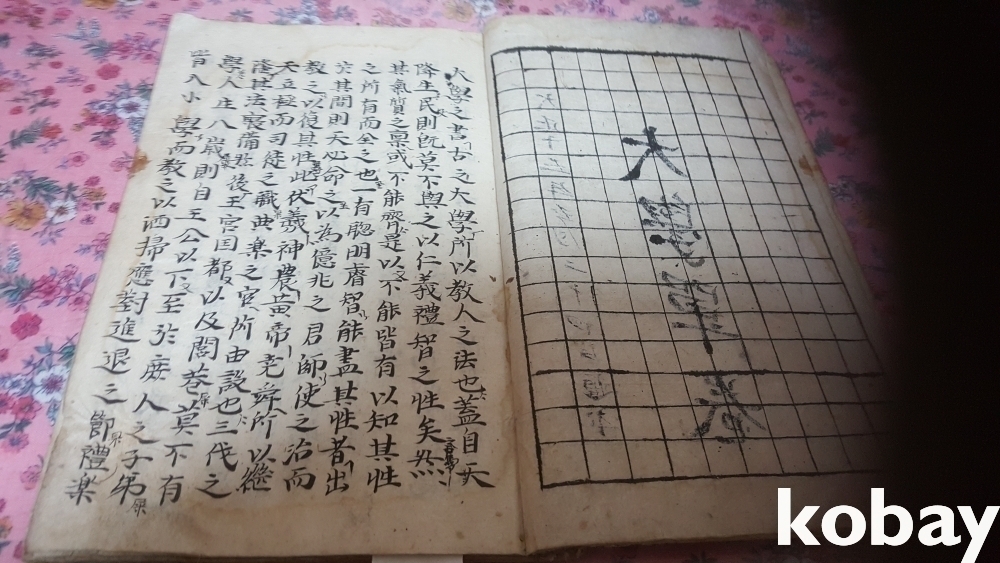 大
大學之書古之大學所以教人之法也蓋自天
降生民則旣莫不與之以仁義禮智之性矣然
其氣質之禀或不能齊是以不能皆有以知其性
之所有而全之也一有聰明睿智能盡其性者出
於其間則天必命之以為億兆之君師使之治而
教之以復其性此伏羲神農黃帝堯舜所以繼
天立極而司徒之職典楽之官所由設也三代之
隆其法寢備然後王宮国都以及閭巷莫不有
學人生八歲則自王公以下至於庶人之子弟
皆入小學而教之以洒掃應對進退之節禮楽
kobay